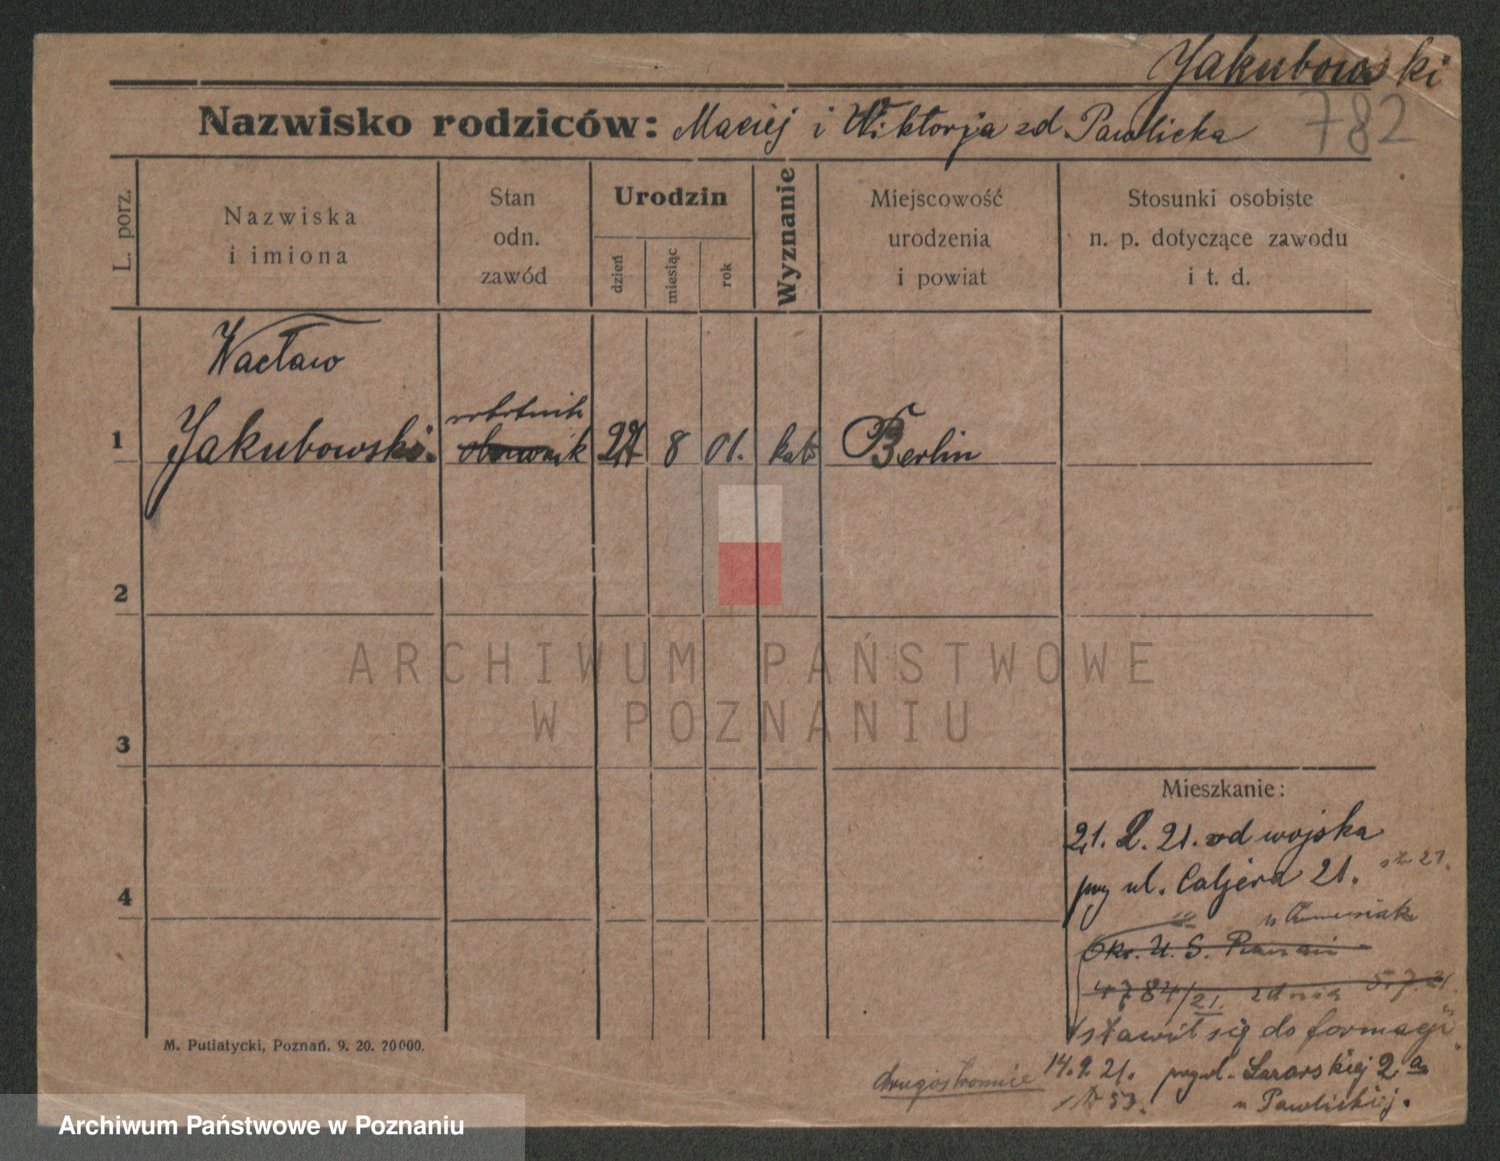 Jakubowski
782
Nazwisko rodziców: Maciej i Wiktorja zd. Pawlicka
L. porz.
Nazwiska
i imiona
Stan
odn.
zawód
Urodzin
dzień
miesiąc
rok
Wyznanie
Miejscowość
urodzenia
i powiat
Stosunki osobiste
n. p. dotyczące zawodu
i t. d.
Wacław
robotnik
1 Jakubowski. 8 01. kat. Berlin
2
ARCHIWUM PAŃSTWOWE
W POZNANIU
3
Mieszkanie:
21. 2. 21. od wojska
przy ul. Caljera 21.
4
4784/21. z dnia 5.7.21.
stawił się do formacji
M. Putiatycki, Poznań. 9. 20. 20000.
drugostronnie 14.9.21. przy ul. 2a
53. u Pawlickiej.
Archiwum Państwowe w Poznaniu